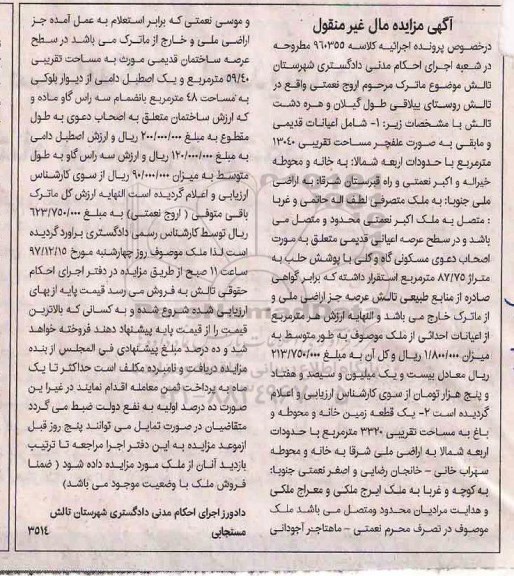 آگهی مزایده مال غیر منقول
درخصوص پرونده اجرائیه کلاسه ۹۶۰۳۵۵ مطروحه
در شعبه اجرای احکام مدنی دادگستری شهرستان
تالش موضوع ماترک مرحوم اروج نعمتی واقع در
تالش روستای ییلاقی طول گیلان و هره دشت
تالش با مشخصات زیر: ۱- شامل اعیانات قدیمی
و مابقی به صورت علفچر مساحت تقریبی ۱۳۰۴۰
مترمربع با حدودات اربعه شمالا: به خانه و محوطه
خیراله و اکبر نعمتی و راه قبرستان شرقا: به اراضی
ملی جنوبا: به ملک متصرفی لطف اله حاتمی و غربا
: متصل به ملک اکبر نعمتی محدود و متصل می
باشد و در سطح عرصه اعیانی قدیمی متعلق به مورث
اصحاب دعوی مسکونی گاه و گلی با پوشش حلب به
متراژ ۸۷/۷۵ مترمربع استقرار داشته که برابر گواهی
صادره از منابع طبیعی تالش عرصه جز اراضی ملی و
از ماترک خارج می باشد و النهایه ارزش هر مترمربع
از اعیانات احداثی از ملک موصوف به طور متوسط به
میزان ۱/۸۰۰/۰۰۰ ریال و کل آن به مبلغ ۲۱۳/۷۵۰/۰۰۰
ریال معادل بیست و یک میلیون و سیصد و هفتاد
و پنج هزار تومان از سوی کارشناس ارزیابی و اعلام
گردیده است ۲- یک قطعه زمین خانه و محوطه و
باغ به مساحت تقریبی ۳۳۲۰ مترمربع با حدودات
اربعه شمالا به اراضی ملی شرقا به خانه و محوطه
سهراب خانی - خانجان رضایی و اصغر نعمتی جنوبا:
به کوچه و غربا به ملک ایرج ملکی و معراج ملکی
و هدایت مرادیان محدود ومتصل می باشد ملک
موصوف در تصرف محرم نعمتی - ماهتاجر آجودانی
و موسی نعمتی که برابر استعلام به عمل آمده جز
اراضی ملی و خارج از ماترک می باشد در سطح
عرصه ساختمان قدیمی مورث به مساحت تقریبی
۵۹/۴۰ مترمربع و یک اصطبل دامی از دیوار بلوکی
به مساحت ۴۸ مترمربع بانضمام سه راس گاو ماده و
که ارزش ساختمان متعلق به اصحاب دعوی به طول
مقطوع به مبلغ ۲۰۰/۰۰۰/۰۰۰ ریال و ارزش اصطبل دامی
به مبلغ ۱۲۰/۰۰۰/۰۰۰ ریال و ارزش سه راس گاو به طول
متوسط به میزان ۹۰/۰۰۰/۰۰۰ ریال از سوی کارشناس
ارزیابی و اعلام گردیده است النهایه ارزش کل ماترک
باقی متوفی ( اروج نعمتی) به مبلغ ۶۲۳/۷۵۰/۰۰۰
ریال توسط کارشناس رسمی دادگستری برآورد گردیده
است لذا ملک موصوف روز چهارشنبه مورخ ۹۷/۱۲/۱۵
ساعت ۱۱ صبح از طریق مزایده در دفتر اجرای احکام
حقوقی تالش به فروش می رسد قیمت پایه از بهای
ارزیابی شده شروع شده و به کسانی که بالاترین
قیمت را از قیمت پایه پیشنهاد دهند فروخته خواهد
شد و ده درصد مبلغ پیشنهادی فی المجلس از بنده
مزایده دریافت و نامبرده مکلف است حداکثر تا یک
ماه به پرداخت ثمن معامله اقدام نمایند در غیرا ین
صورت ده درصد اولیه به نفع دولت ضبط می گردد
متقاضیان در صورت تمایل می توانند پنج روز قبل
ازموعد مزایده به این دفتر اجرا مراجعه تا ترتیب
بازدید آنان از ملک مورد مزایده داده شود ( ضمنا
فروش ملک با وضعیت موجود می باشد)
دادورز اجرای احکام مدنی دادگستری شهرستان تالش
مستجابی
۳۵۱۴